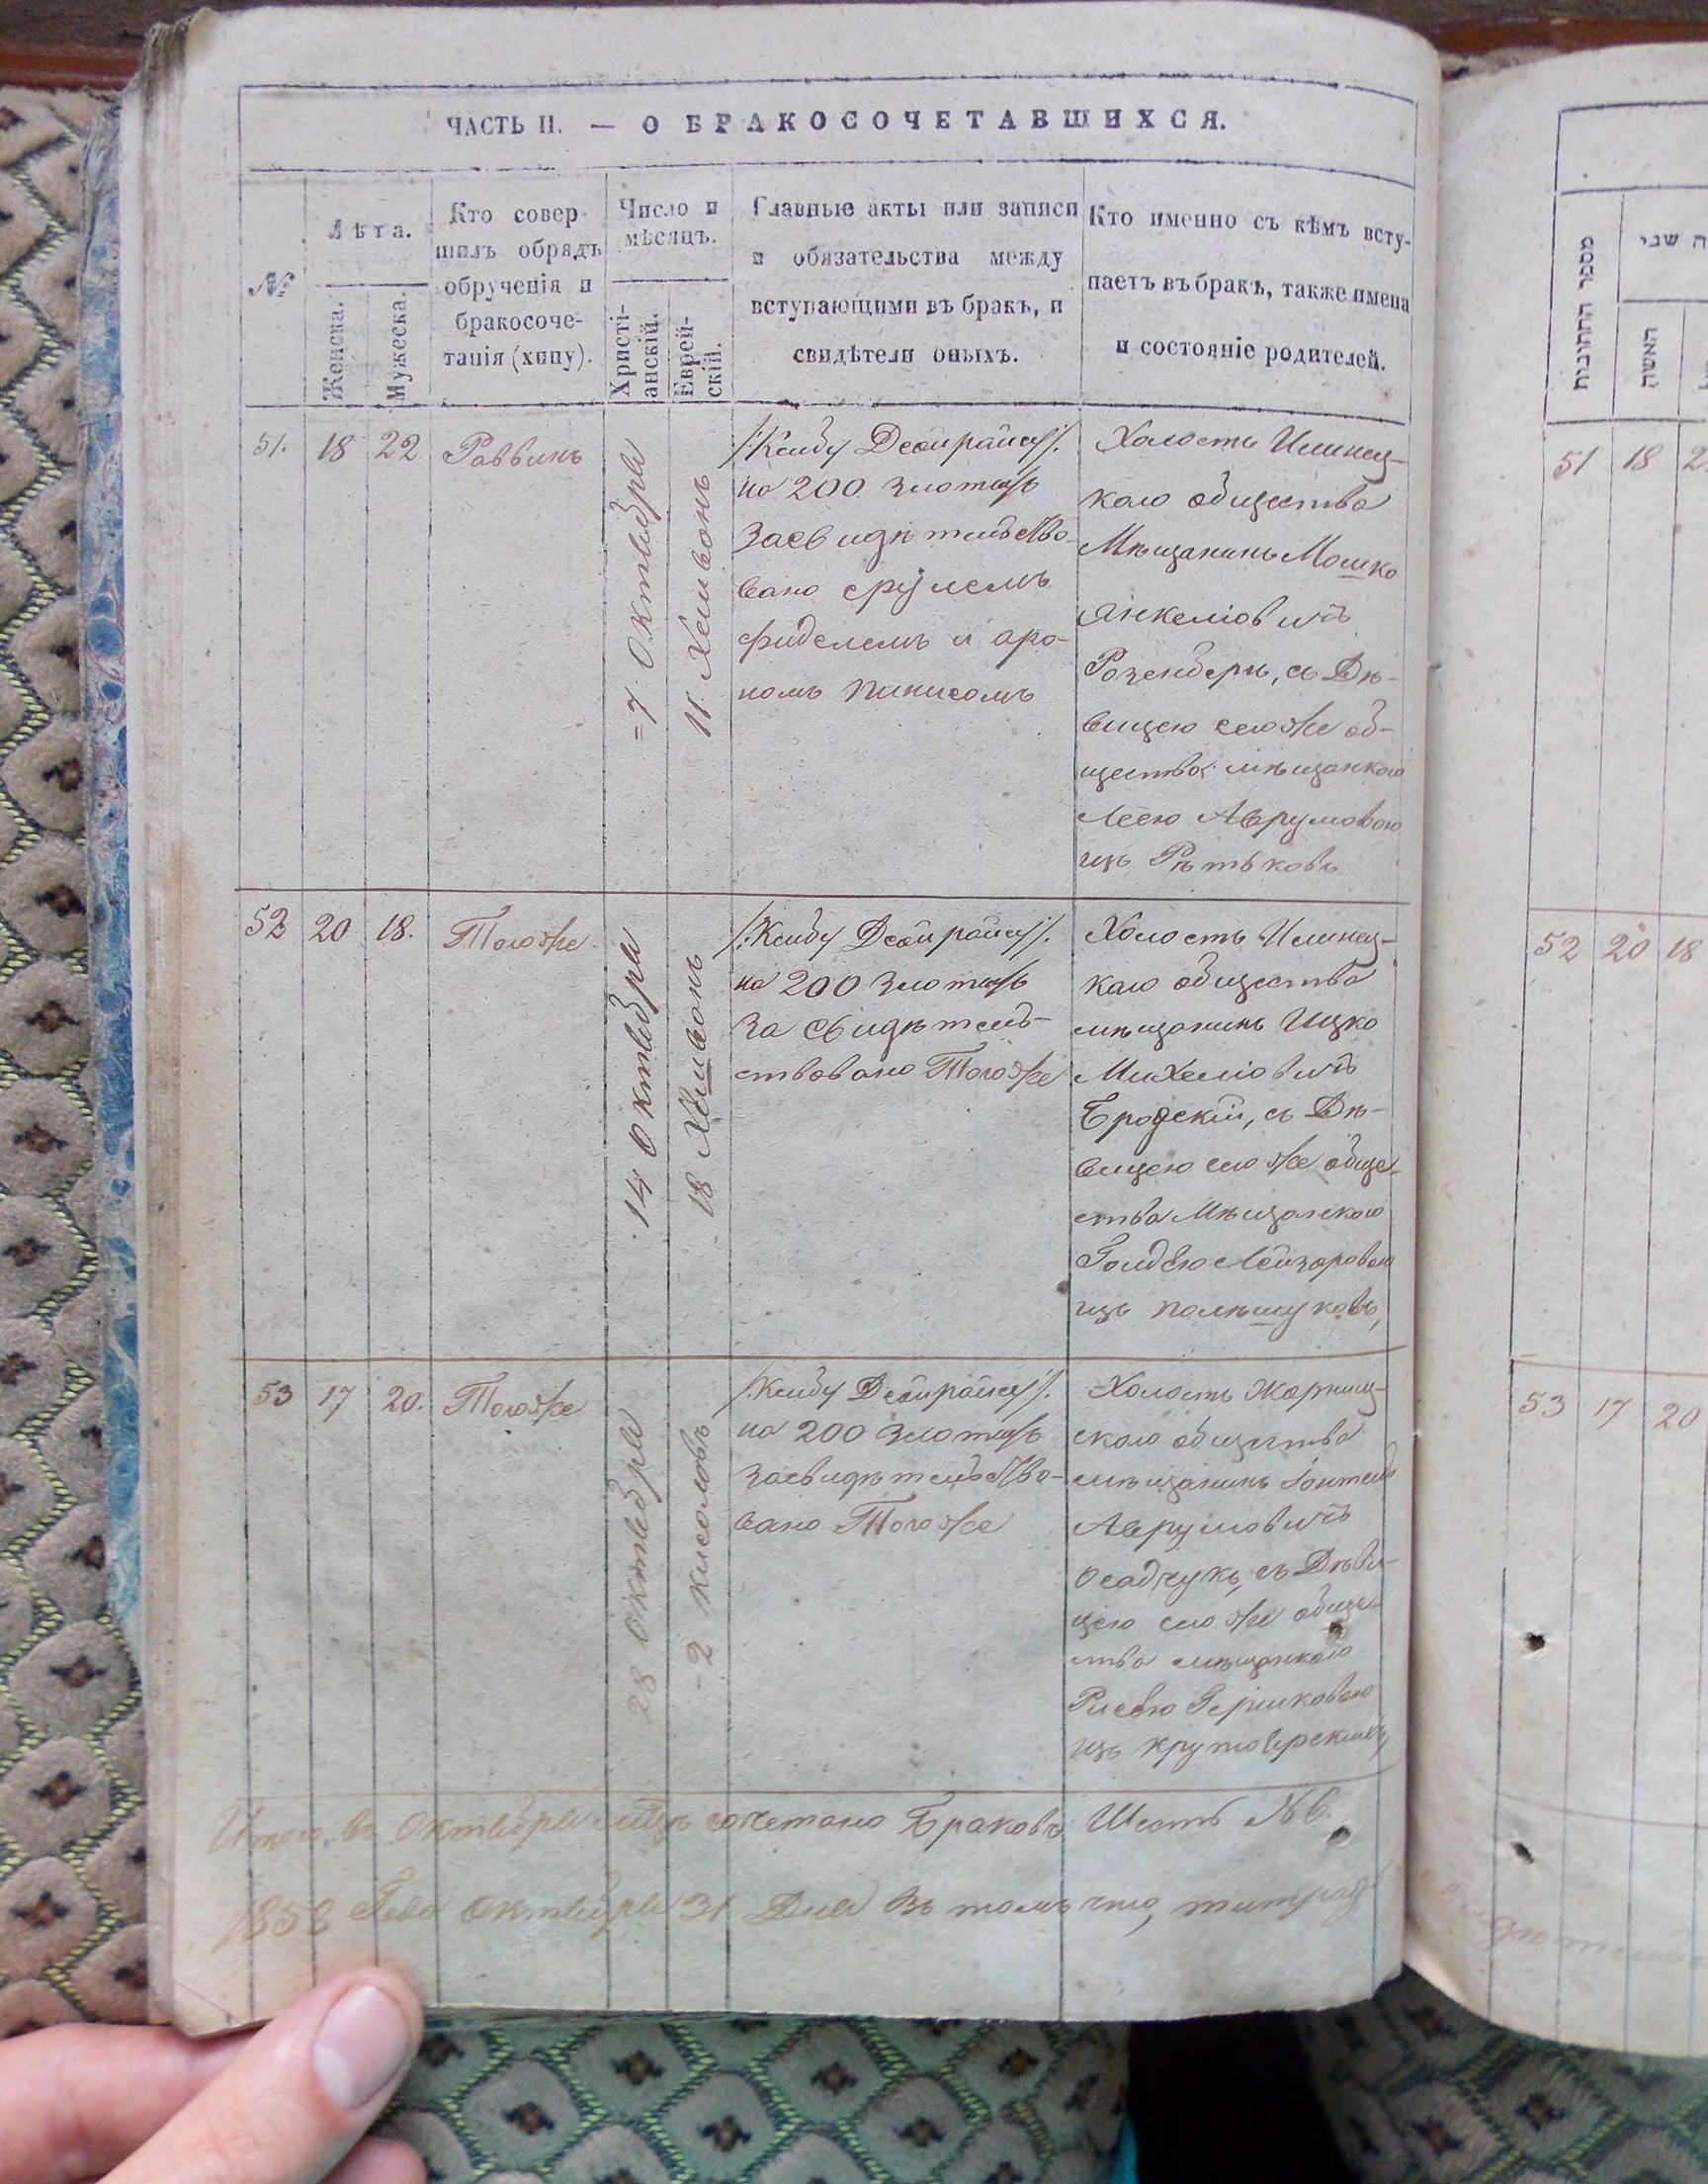 ЧАСТЬ II. — О БРАКОСОЧЕТАВШИХСЯ.
№
Лѣта.
Женска.
Мужеска.
Кто совер-
шилъ обрядъ
обрученія и
бракосоче-
танія (хипу).
Число и
мѣсяцъ.
Христі-
анскій.
Еврей-
скій.
Главные акты или записи
и обязательства между
вступающими въ бракъ, и
свидѣтели оныхъ.
Кто именно съ кѣмъ всту-
паетъ въ бракъ, также имена
и состояніе родителей.
51. 18 22 Раввинъ
7 Октября
11 Хешвонъ
на 200 злотыхъ
засвидѣтельство-
вано срулемъ
фиделемъ и аро-
номъ пинисомъ
Холостъ Илинец-
каго общества
Мѣщанинъ Мошко
Янкеліовичъ
Розенберъ, съ Дѣ-
вицею сегоже об-
щества мѣщанкою
Леею Аврумовою
изъ
52 20 18. Тогоже
14 Октября
18 Хешвонъ
на 200 злотыхъ
за свидѣтель-
ствовано Тогоже
Холостъ Илинец-
каго общества
мѣщанинъ Ицко
Михеліовичъ
Бродскій, съ Дѣ-
вицею сегоже обще-
ства Мѣщанскою
Голдою Лейзоровою
изъ полѣшуковъ,
53 17 20. Тогоже
28 октября
2 кисловъ
на 200 злотыхъ
засвидѣтельство-
вано Тогоже
Холостъ Жорнищ-
скаго общества
мѣщанинъ
Аврумовичъ
Осадчукъ, съ Дѣви-
цею сегоже обще-
ства мѣщанкою
Гершковою
изъ
Итого въ Октябрѣ сочетано Браковъ Шесть №6.
Года Октября 31 Дня Въ томъ что,
מספר החתונות
שני
האשה
51 18 2
52 20 18
53 17 20